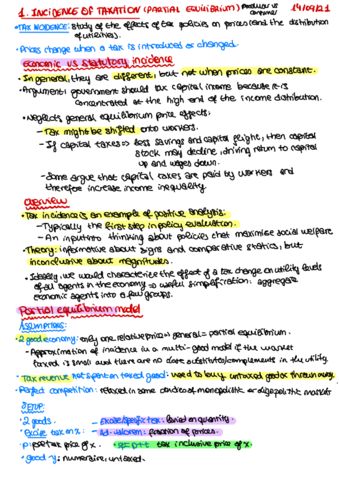 1. INCIDENCE OF TAXATION (PARTIAL EQUILIBRIUM) producer vs consumer 14/04/21
• TAX INCIDENCE: study of the effects of tax policies on prices (and the distribution of utilities).
• Prices change when a tax is introduced or changed.
Economic vs statutory incidence
• In general, they are different, but not when prices are constant.
• Argument: government should tax capital income because it is concentrated at the high end of the income distribution.
• Neglects general equilibrium price effects:
– Tax might be shifted onto workers.
– If capital taxes ⇒ less savings and capital flight, then capital stock may decline, driving return to capital up and wages down.
– Some argue that capital taxes are paid by workers and therefore increase income inequality.
Overview
• Tax incidence is an example of positive analysis:
– Typically the first step in policy evaluation.
– An input into thinking about policies that maximise social welfare
• Theory: informative about signs and comparative statics, but inconclusive about magnitudes.
• Ideally, we would characterise the effect of a tax change on utility levels of all agents in the economy → useful simplification: aggregate economic agents into a few groups.
Partial equilibrium model
Assumptions:
• 2 good economy: only one relative price ⇒ general = partial equilibrium.
– Approximation of incidence in a multi-good model if the market taxed is small and there are no close substitutes/complements in the utility.
• Tax revenue not spent on taxed good: used to buy untaxed good or thrown away.
• Perfect competition: relaxed in some
Setup:
• 2 goods.
• Excise tax on x:
– Excise/specific tax: levied on quantity.
– Ad-valorem: fraction of prices.
• p: pretax price of x.
• q = p + t tax inclusive price of x.
• good y: numeraire, untaxed.